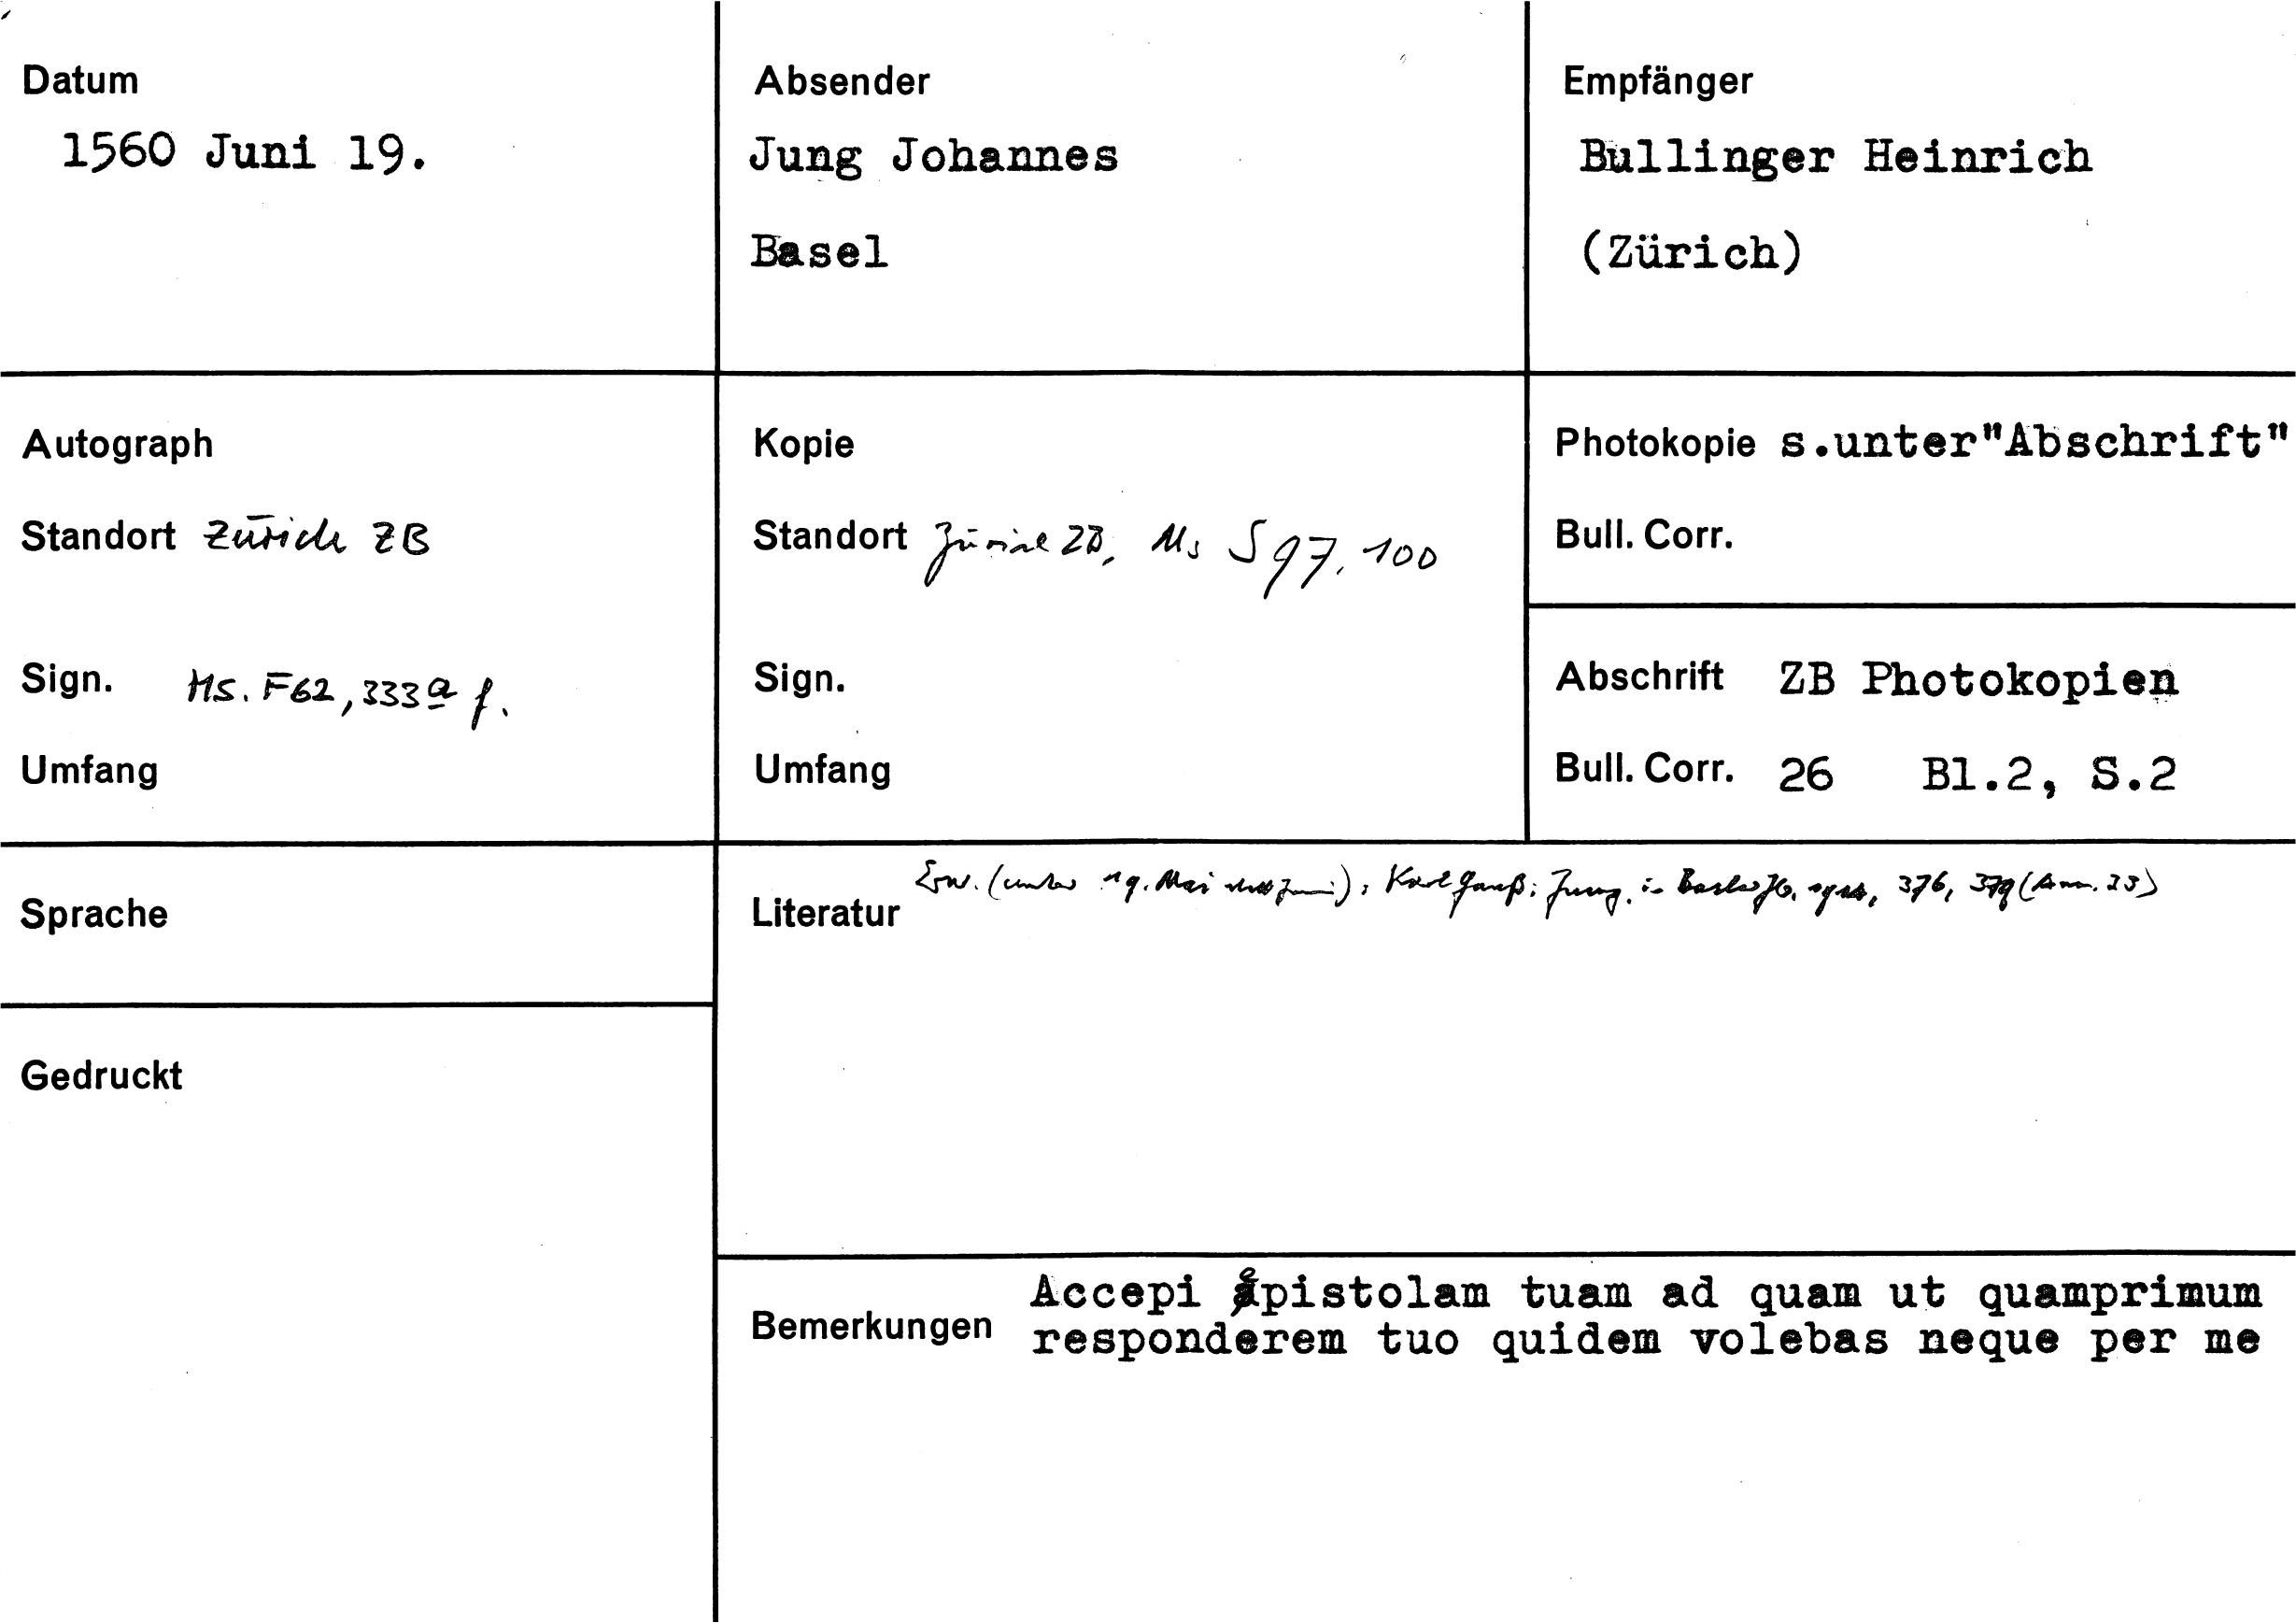 Datum
1560 Juni 19.
Absender
Jung Johannes
Basel
Empfänger
Bullinger Heinrich
(Zürich)
Autograph
Standort Zürich ZB
Sign. Ms. F62, 333a f.
Umfang
Kopie
Standort Zürich ZB, Ms S 97, 100
Sign.
Umfang
Photokopie s.unter"Abschrift"
Bull. Corr.
Abschrift ZB Photokopien
Bull. Corr. 26 Bl.2, S.2
Sprache
Gedruckt
Literatur Erw. (unter 19. Mai statt Juni): Karl Gauß: Jung, in Basler Jb. 376, 379 (Anm. 23)
Bemerkungen Accepi epistolam tuam ad quam ut quamprimum
responderem tuo quidem volebas neque per me